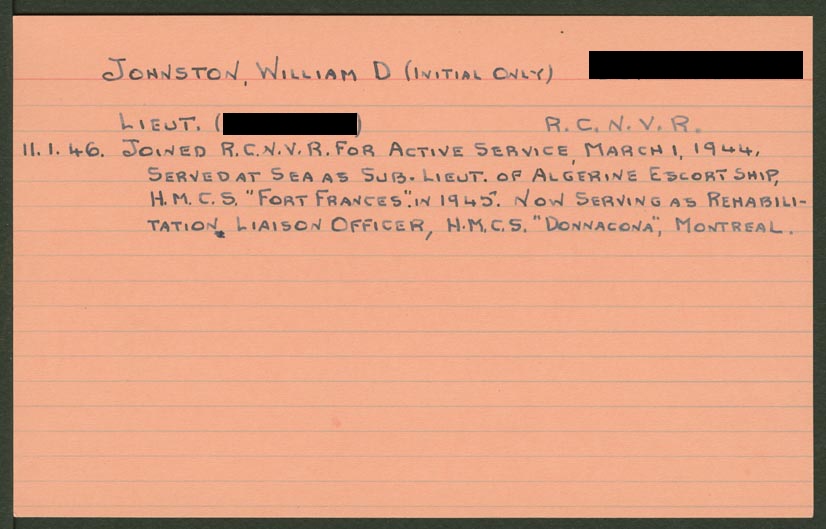 JOHNSTON, WILLIAM D (INITIAL ONLY)
LIEUT. ( ) R.C.N.V.R.
11.1.46. JOINED R.C.N.V.R. FOR ACTIVE SERVICE, MARCH 1, 1944.
SERVED AT SEA AS SUB-LIEUT. OF ALGERINE ESCORT SHIP,
H.M.C.S. "FORT FRANCES". IN 1945. NOW SERVING AS REHABILI-
TATION LIAISON OFFICER, H.M.C.S. "DONNACONA", MONTREAL.